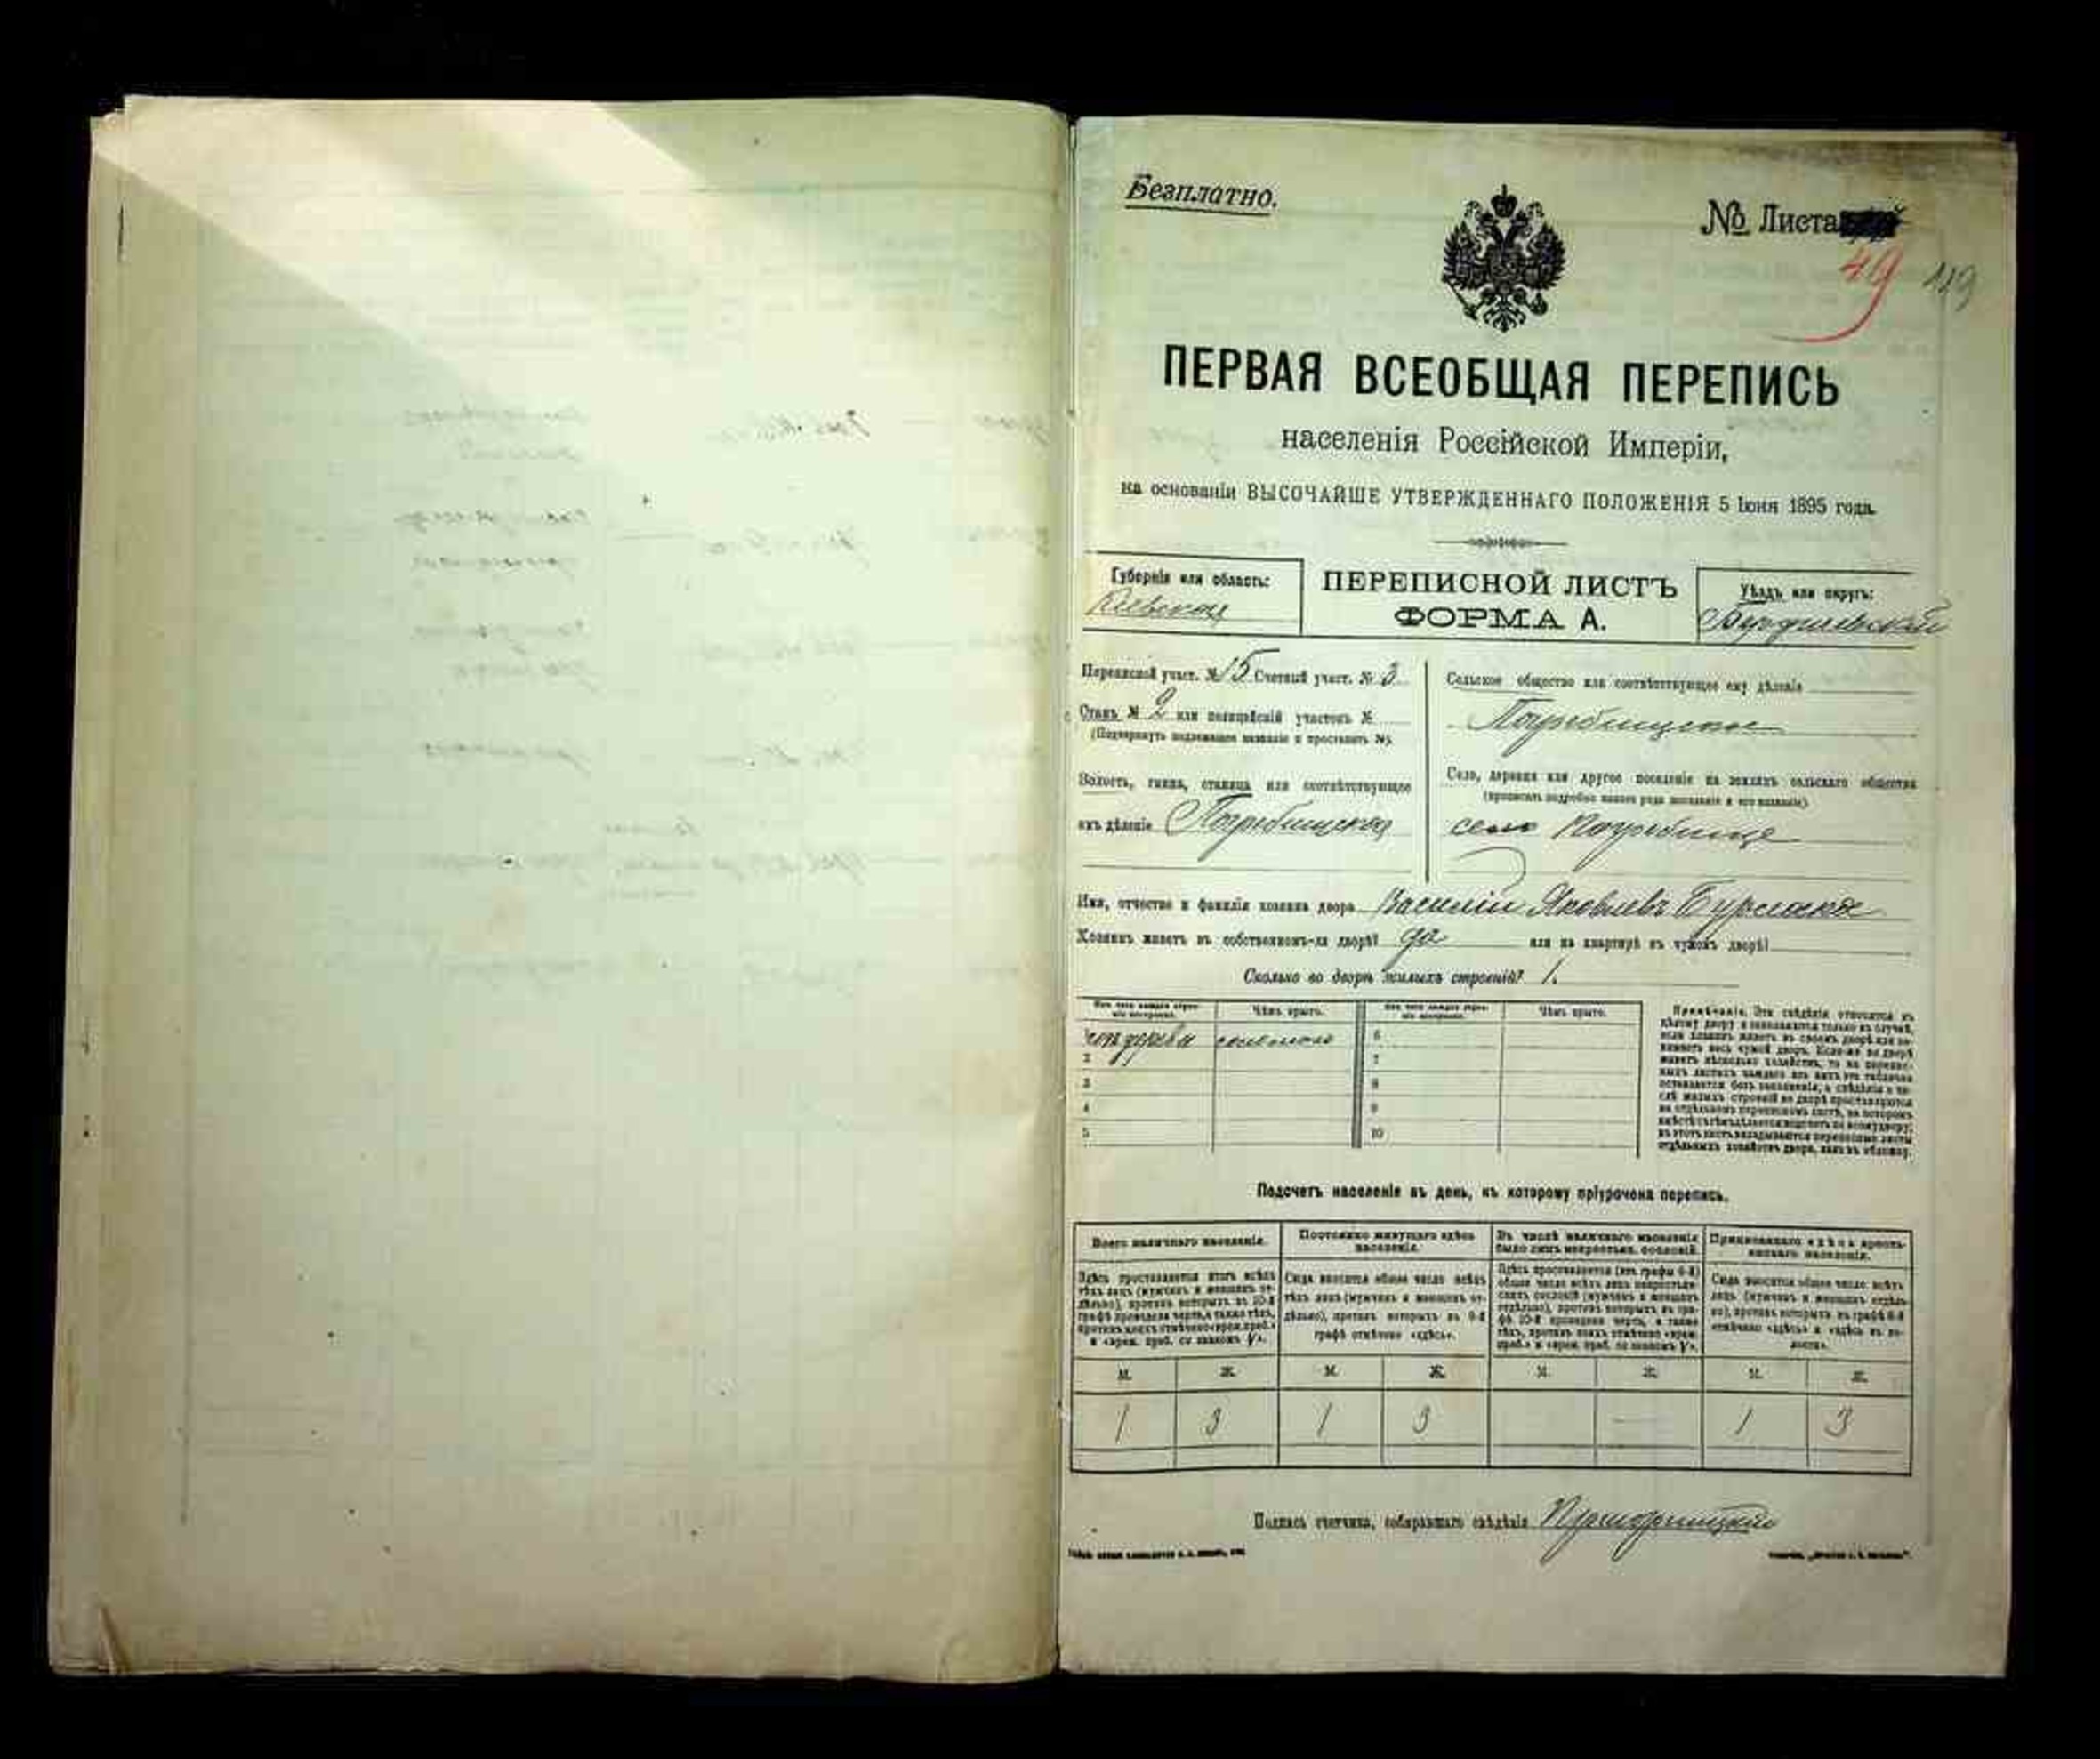 Безплатно.
№ Листа
49 119
ПЕРВАЯ ВСЕОБЩАЯ ПЕРЕПИСЬ
населенія Россійской Имперіи,
на основаніи ВЫСОЧАЙШЕ УТВЕРЖДЕННАГО ПОЛОЖЕНІЯ 5 Іюня 1895 года.
Губернія или область:
Кіевская
ПЕРЕПИСНОЙ ЛИСТЪ
ФОРМА А.
Уѣздъ или округъ:
Бердичевскій
Переписной участ. № 15 Счетный участ. № 3
Станъ № 2 или полицейскій участокъ №
(Подчеркнуть подлежащее названіе и проставить №).
Волость, гмина, станица или соотвѣтствующее
имъ дѣленіе Погребищская
Сельское общество или соотвѣтствующее ему дѣленіе
Погребищское
Село, деревня или другое поселеніе на земляхъ сельскаго общества
(прописать подробно какого рода поселеніе и его названіе).
село Погребище
Имя, отчество и фамилія хозяина двора Василій Яковлевъ
Хозяинъ живетъ въ собственномъ-ли дворѣ? да или на квартирѣ въ чужомъ дворѣ?
Сколько во дворѣ жилыхъ строеній? 1.
Изъ чего каждое строе-
ніе построено.
Чѣмъ крыто.
Изъ чего каждое строе-
ніе построено.
Чѣмъ крыто.
1 изъ дерева соломою 6
2 7
3 8
4 9
5 10
Примѣчаніе. Эти свѣдѣнія относятся къ
цѣлому двору и заполняются только въ случаѣ,
если хозяинъ живетъ въ своемъ дворѣ или за-
нимаетъ весь чужой дворъ. Если-же во дворѣ
имѣетъ нѣсколько хозяйствъ, то на перепис-
ныхъ листахъ каждаго изъ нихъ эта табличка
оставляется безъ заполненія, а свѣдѣнія о чи-
слѣ жилыхъ строеній во дворѣ проставляются
на отдѣльномъ переписномъ листѣ, на которомъ
вмѣстѣ съ тѣмъ дѣлается подсчетъ по всему двору;
въ этотъ листъ вкладываются переписные листы
отдѣльныхъ хозяйствъ двора, какъ въ обложку.
Подсчетъ населенія въ день, къ которому пріурочена перепись.
Всего наличнаго населенія.
Здѣсь проставляется итогъ всѣхъ
тѣхъ лицъ (мужчинъ и женщинъ от-
дѣльно), противъ которыхъ въ 10-й
графѣ проведена черта, а также тѣхъ,
противъ коихъ отмѣчено «врем. преб.»
и «врем. преб. со знакомъ V».
Постоянно живущаго здѣсь
населенія.
Сюда вносится общее число всѣхъ
тѣхъ лицъ (мужчинъ и женщинъ от-
дѣльно), противъ которыхъ въ 9-й
графѣ отмѣчено «здѣсь».
Въ числѣ наличнаго населенія
было лицъ некрестьян. сословій.
Здѣсь проставляется (изъ графы 6-й)
общее число всѣхъ лицъ некрестьян-
скихъ сословій (мужчинъ и женщинъ
отдѣльно), противъ которыхъ въ гра-
фѣ 10-й проведена черта, а также
тѣхъ, противъ коихъ отмѣчено «врем.
преб.» и «врем. преб. со знакомъ V».
Приписаннаго здѣсь кресть-
янскаго населенія.
Сюда вносится общее число всѣхъ
лицъ (мужчинъ и женщинъ отдѣль-
но), противъ которыхъ въ графѣ 8-й
отмѣчено «здѣсь» и «здѣсь въ во-
лости».
М. Ж. М. Ж. М. Ж. М. Ж.
1 3 1 3 — 1 3
Подпись счетчика, собиравшаго свѣдѣнія